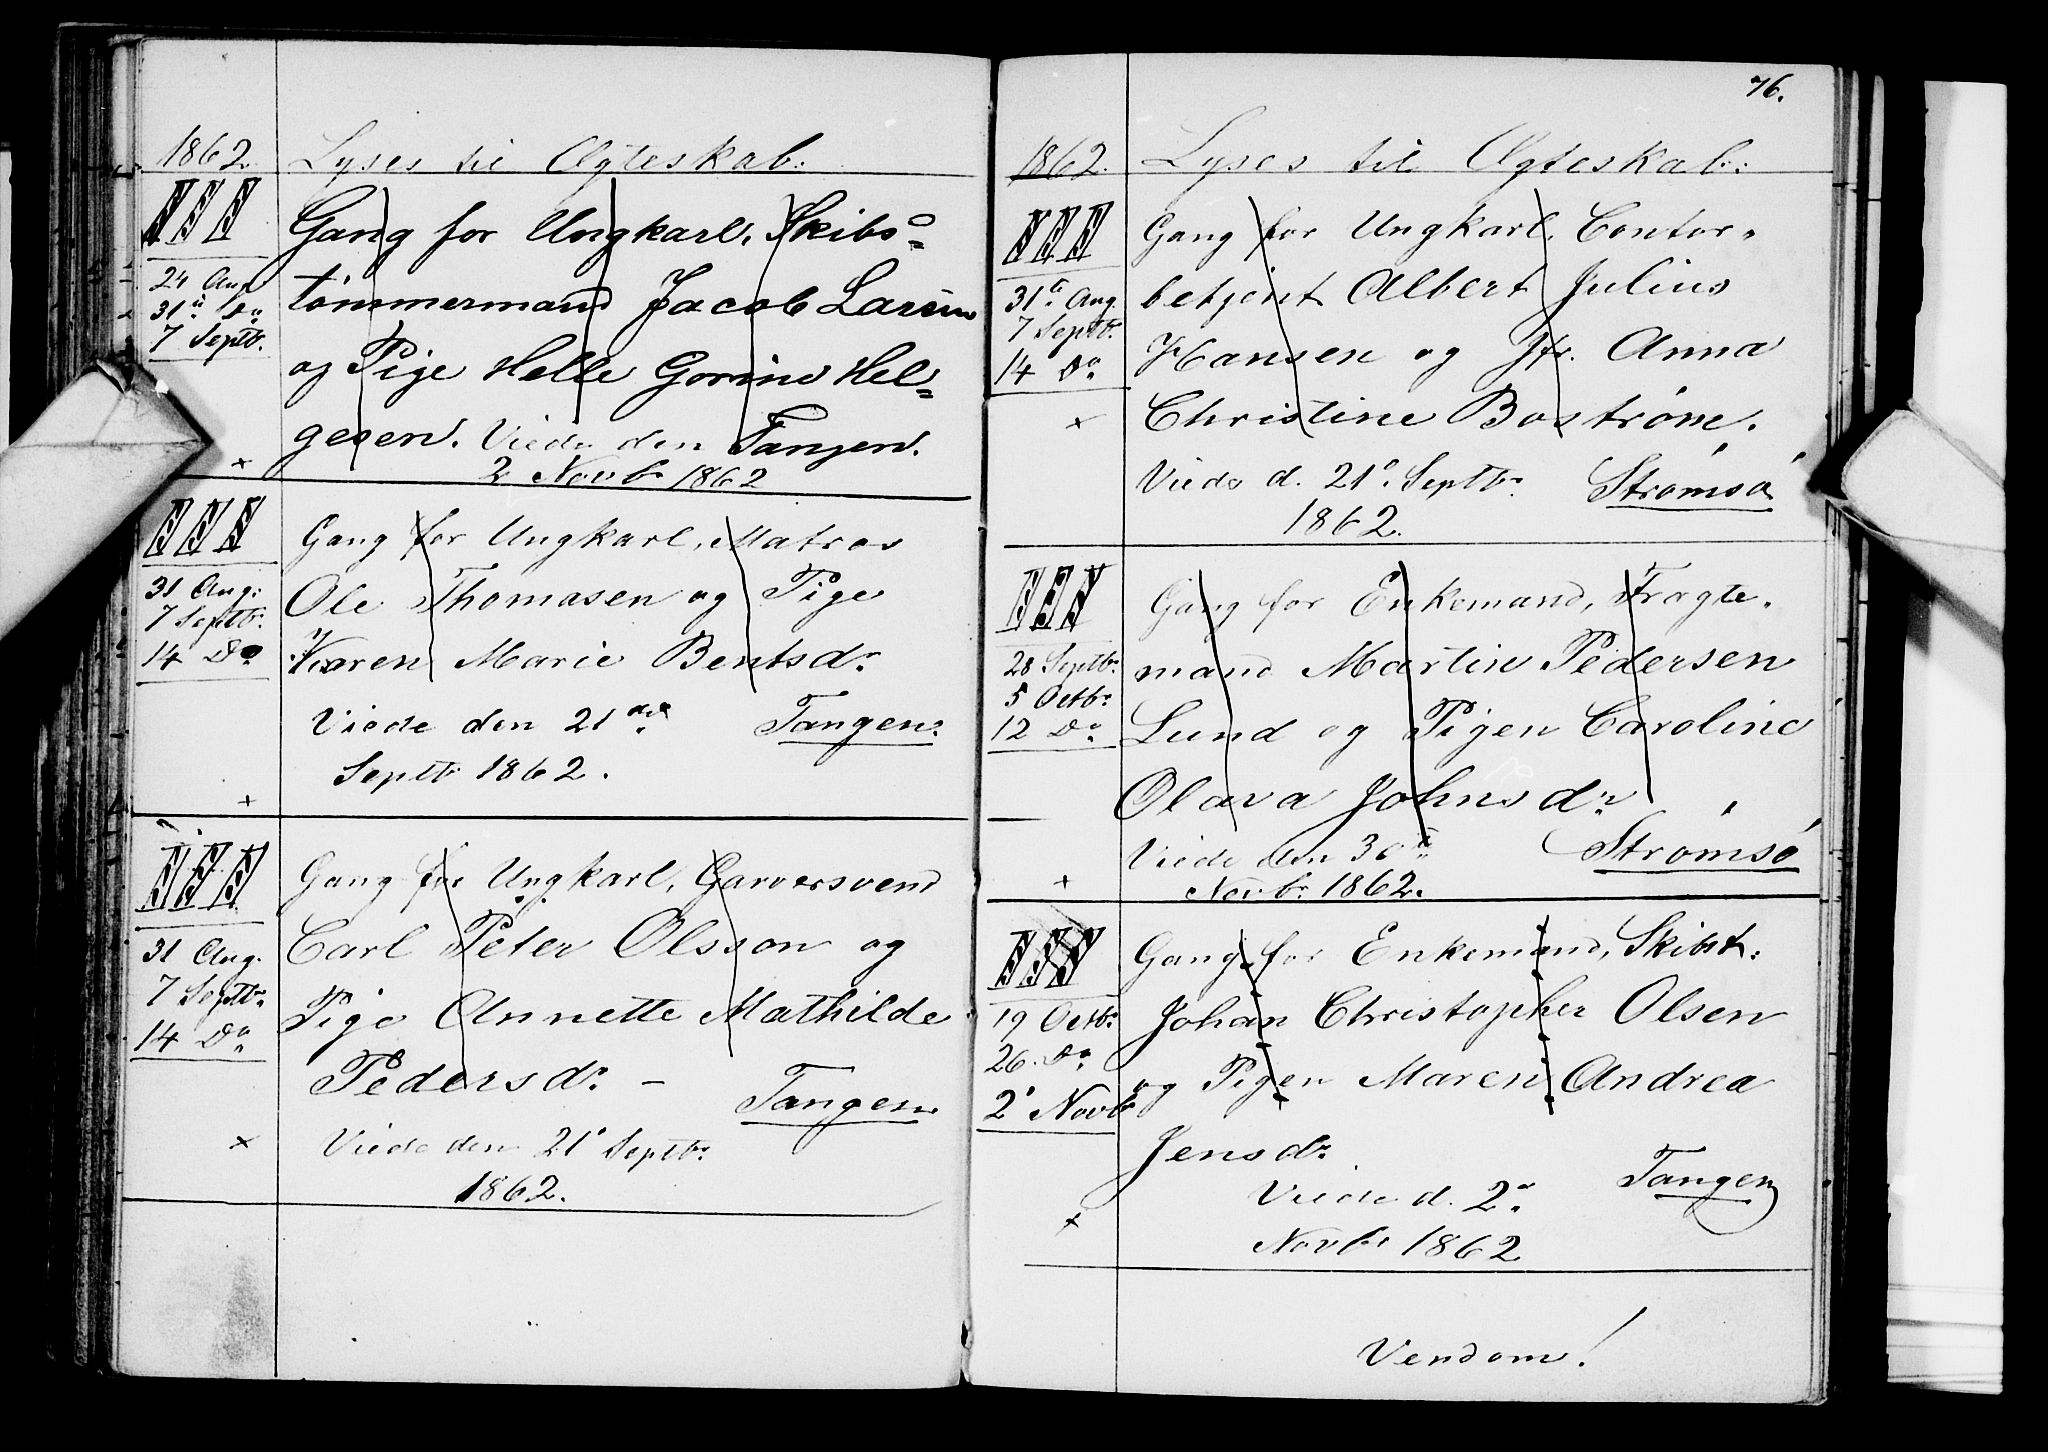 1862. Lyses til Ægteskab:
III Gang for Ungkarl, Skibs=
24 Aug. tømmermand Jacob Larsen
31te Do
7 Septbr. og Pige Helle Gorine Hel=
gesen. Viede den Tangen.
2 Novbr 1862
III Gang for Ungkarl, Matros
31 Aug. Ole Thomasen og Pige
7 Septbr.
14 Do Karen Marie Bentsdr
Viede den 21de Tangen.
Septbr 1862.
III Gang for Ungkarl, Garversvend
31 Aug. Carl Peter Olsson og
7 Septbr.
14 Do Pige Annette Mathilde
Pedersdr. –
Tangen
Viede den 21' Septbr.
1862.
76.
1862. Lyses til Ægteskab:
III Gang for Ungkarl, Contor-
31te Aug. betjent Albert Julius
7 Septbr.
14 Do Hansen og Jfr. Anna
Christine Bostrøm.
Viede d. 21' Septbr. Strømsø
1862.
III Gang for Enkemand, Fragte-
28 Septbr. mand Martin Pedersen
5 Octbr.
12 Do Lund og Pigen Caroline
Olava Johnsdr
Viede den 30te Strømsø
Novbr. 1862.
III Gang for Enkemand, Skibst.
19 Octbr. Johan Christopher Olsen
26. Do
2' Novbr og Pigen Maren Andrea
Jensdr.
Viede d. 2n Tangen
Novbr 1862
Vendom!